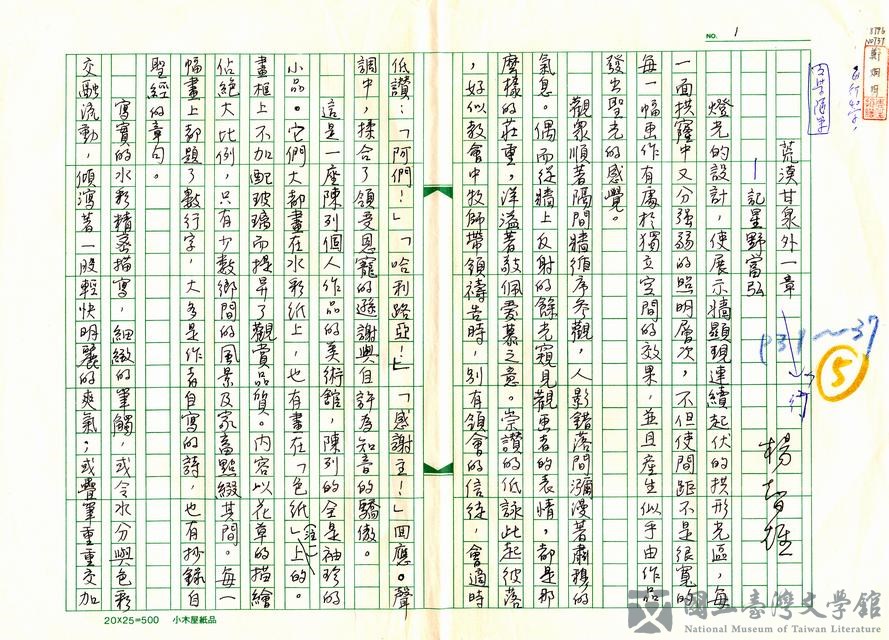 NO. 1
荒漠甘泉外一章
—記星野富弘
楊智雄
燈光的設計，使展示牆顯現連續起伏的拱形光區，每
一面拱窿中又分強弱的照明層次，不但使間距不是很寬的
每一幅画作有處於獨立空間的效果，並且產生似乎由作品
發出聖光的感覺。
觀眾順著隔間牆循序參觀，人影錯落間瀰漫著肅穆的
氣息。偶而從牆上反射的餘光窺見觀画者的表情，都是那
麼樣的莊重，洋溢著敬佩愛慕之意。崇讚的低詠此起彼落
，好似教會中牧師帶領禱告時，別有領會的信徒，會適時
低讚：「阿們！」「哈利路亞！」「感謝主！」回應。聲
調中，揉合了領受恩寵的遜謝與自許為知音的驕傲。
這是一座陳列個人作品的美術館，陳列的全是袖珍的
小品。它們大都畫在水彩紙上，也有畫在「色紙」上的。
(註一)
畫框上不加配玻璃而提昇了觀賞品質。內容以花草的描繪
佔絕大比例，只有少數鄉間的風景及家畜點綴其間。每一
幅畫上都題了數行字，大多是作者自寫的詩，也有抄錄自
聖經的章句。
寫實的水彩精密描寫，細緻的筆觸，或令水分與色彩
交融流動，傾瀉著一股輕快明麗的爽氣；或疊筆重重交加
p31～37
5
20X25=500 小木屋紙品
國立臺灣文學館
National Museum of Taiwan Literature